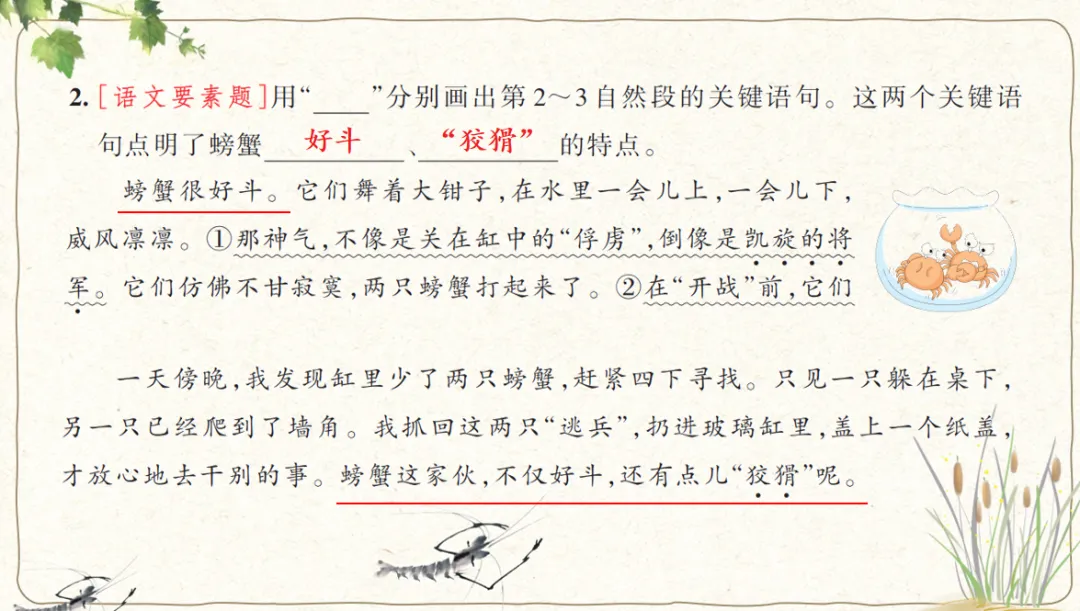 2.[语文要素题]用“____”分别画出第2～3自然段的关键语句。这两个关键语
句点明了螃蟹 好斗 、 “狡猾” 的特点。
螃蟹很好斗。它们舞着大钳子,在水里一会儿上,一会儿下,
威风凛凛。①那神气,不像是关在缸中的“俘虏”,倒像是凯旋的将
军。它们仿佛不甘寂寞,两只螃蟹打起来了。②在“开战”前,它们
一天傍晚,我发现缸里少了两只螃蟹,赶紧四下寻找。只见一只躲在桌下,
另一只已经爬到了墙角。我抓回这两只“逃兵”,扔进玻璃缸里,盖上一个纸盖,
才放心地去干别的事。螃蟹这家伙,不仅好斗,还有点儿“狡猾”呢。